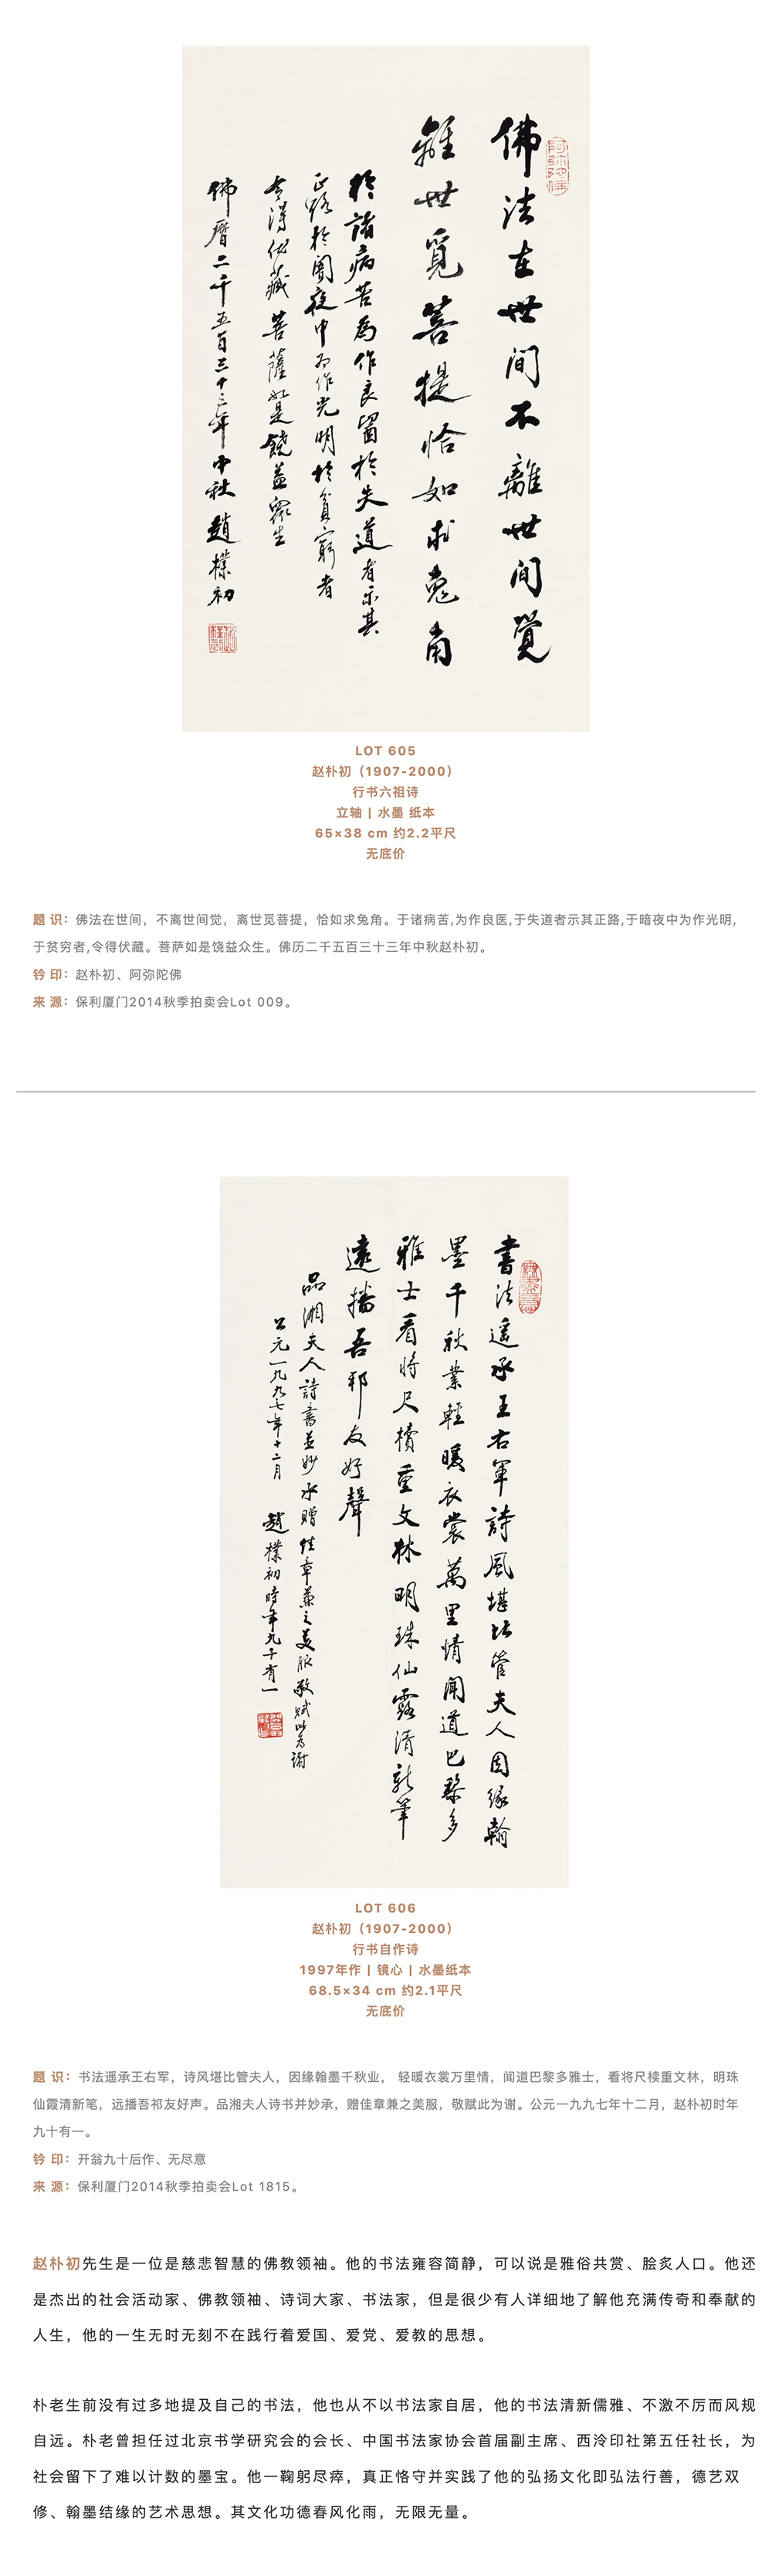 佛法在世间不離世间覺
離世覓菩提恰如求兔角
於諸病苦為作良醫於失道者示其
正路於闇夜中為作光明於貧窮者
令得伏藏菩薩如是饒益衆生
佛曆二千五百三十三年中秋 趙樸初
LOT 605
赵朴初（1907-2000）
行书六祖诗
立轴 | 水墨 纸本
65×38 cm 约2.2平尺
无底价
题 识：佛法在世间，不离世间觉，离世觅菩提，恰如求兔角。于诸病苦,为作良医,于失道者示其正路,于暗夜中为作光明,
于贫穷者,令得伏藏。菩萨如是饶益众生。佛历二千五百三十三年中秋赵朴初。
钤 印：赵朴初、阿弥陀佛
来 源：保利厦门2014秋季拍卖会Lot 009。
書法遥承王右軍詩風堪比管夫人因緣翰
墨千秋業輕暖衣裳萬里情聞道巴黎多
雅士看將尺牘重文林明珠仙露清新筆
遠播吾邦友好聲
品湘夫人詩書並妙承贈佳章兼之美服敬賦此為謝
公元一九九七年十二月 趙樸初時年九十有一
LOT 606
赵朴初（1907-2000）
行书自作诗
1997年作 | 镜心 | 水墨纸本
68.5×34 cm 约2.1平尺
无底价
题 识：书法遥承王右军，诗风堪比管夫人，因缘翰墨千秋业， 轻暖衣裳万里情，闻道巴黎多雅士，看将尺椟重文林，明珠
仙霞清新笔，远播吾祁友好声。品湘夫人诗书并妙承，赠佳章兼之美服，敬赋此为谢。公元一九九七年十二月，赵朴初时年
九十有一。
钤 印：开翁九十后作、无尽意
来 源：保利厦门2014秋季拍卖会Lot 1815。
赵朴初先生是一位是慈悲智慧的佛教领袖。他的书法雍容简静，可以说是雅俗共赏、脍炙人口。他还
是杰出的社会活动家、佛教领袖、诗词大家、书法家，但是很少有人详细地了解他充满传奇和奉献的
人生，他的一生无时无刻不在践行着爱国、爱党、爱教的思想。
朴老生前没有过多地提及自己的书法，他也从不以书法家自居，他的书法清新儒雅、不激不厉而风规
自远。朴老曾担任过北京书学研究会的会长、中国书法家协会首届副主席、西泠印社第五任社长，为
社会留下了难以计数的墨宝。他一鞠躬尽瘁，真正恪守并实践了他的弘扬文化即弘法行善，德艺双
修、翰墨结缘的艺术思想。其文化功德春风化雨，无限无量。